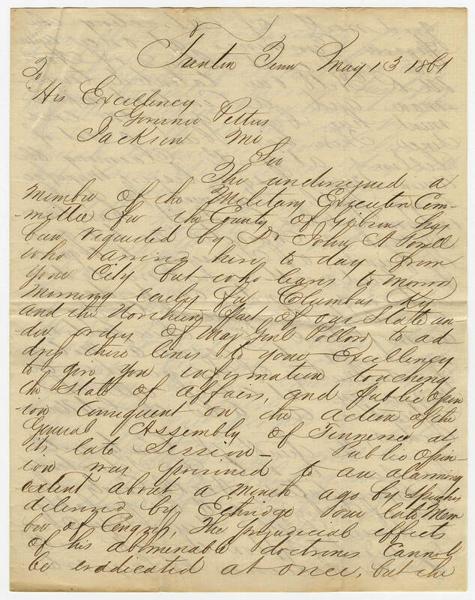 Trenton Tenn May 13 1861
To
His Excellency
Governor Pettus
Jackson Mi
Sir
The undersigned a
member of the Military Executive Com-
mittee for the County of Gibson has
been requested by Dr John A
who arrived here to day from
your City but who leaves to morrow
Morning early for Columbus Ky
and the Northern part of our State un-
der orders of Maj Genl Pillow, to ad-
dress these lines to your Excellency
to give you information touching
the State of affairs, and Public Opin-
ion consequent on the action of the
General Assembly of Tennessee at
it, late Session— Public Opin-
ion was poisoned to an alarming
extent about a Month ago by Speeches
delivered by Etheridge our late Mem
ber of Congress, The prejudicial effects
of his abominable doctrines Cannot
be eradicated at once, but the